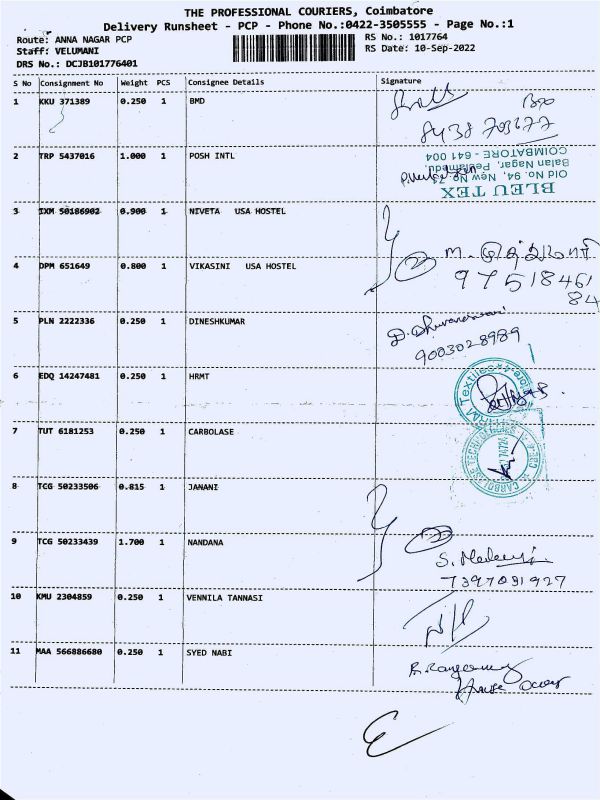 THE PROFESSIONAL COURIERS, Coimbatore
Delivery Runsheet - PCP - Phone No.:0422-3505555 - Page No.:1
Route: ANNA NAGAR PCP
Staff: VELUMANI
DRS No.: DCJB101776401
RS No.: 1017764
RS Date: 10-Sep-2022
S No Consignment No Weight PCS Consignee Details Signature
1 KKU 371389 0.250 1 BMD
2 TRP 5437016 1.000 1 POSH INTL
BLEU TEX
Old No. 94, New No. 73,
Balan Nagar, Peelamedu,
COIMBATORE - 641 004
3 IXM 50186902 0.900 1 NIVETA USA HOSTEL
4 DPM 651649 0.800 1 VIKASINI USA HOSTEL
97518461
84
5 PLN 2222336 0.250 1 DINESHKUMAR
9003028989
6 EDQ 14247481 0.250 1 HRMT
7 TUT 6181253 0.250 1 CARBOLASE
8 TCG 50233506 0.815 1 JANANI
9 TCG 50233439 1.700 1 NANDANA
7397031927
10 KMU 2304859 0.250 1 VENNILA TANNASI
11 MAA 566886680 0.250 1 SYED NABI
House Owner